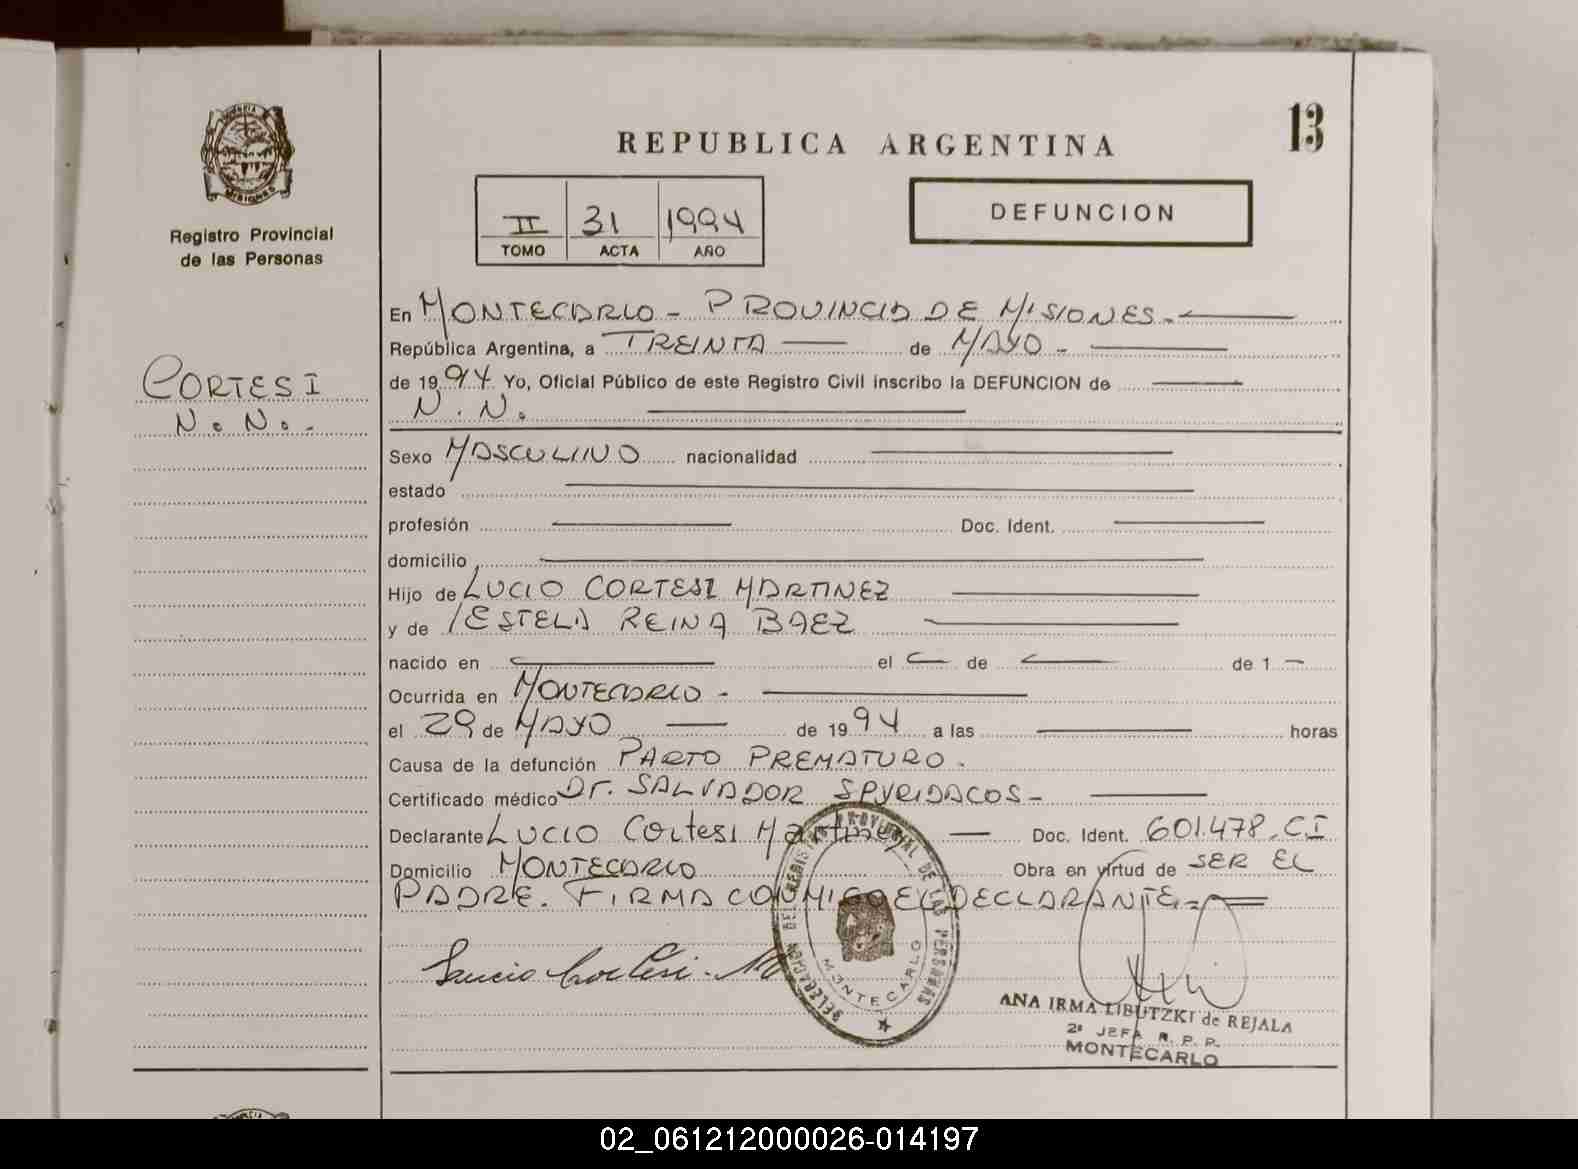 13
REPUBLICA ARGENTINA
II 31 1994
TOMO ACTA AÑO
DEFUNCION
MISIONES
Registro Provincial
de las Personas
CORTESI
N. N. -
En MONTECARLO - PROVINCIA DE MISIONES. -
República Argentina, a TREINTA de MAYO -
de 1994 Yo, Oficial Público de este Registro Civil inscribo la DEFUNCION de
N. N.
Sexo MASCULINO nacionalidad
estado
profesión Doc. Ident.
domicilio
Hijo de LUCIO CORTESI MARTINEZ
y de ESTELA REINA BAEZ
nacido en el de de 1
Ocurrida en MONTECARLO -
el 29 de MAYO de 1994 a las horas
Causa de la defunción PARTO PREMATURO.
Certificado médico Dr. SALVADOR SPYRIDACOS -
Declarante LUCIO CORTESI Martinez Doc. Ident. 601.478. CI
Domicilio MONTECARLO Obra en virtud de SER EL
PADRE. FIRMA CONMIGO EL DECLARANTE. =
Lucio Cortesi. M
DELEGACION DEL REGISTRO PROVINCIAL DE LAS PERSONAS
MONTECARLO
ANA IRMA LIBUTZKI de REJALA
2ª JEFA R. P. P.
MONTECARLO
02_061212000026-014197